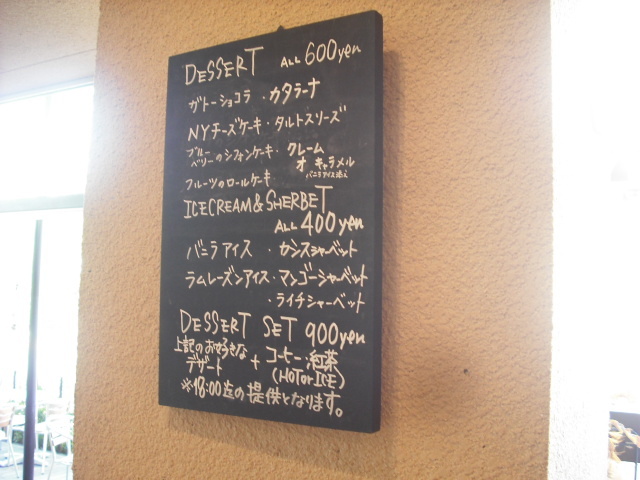 DESSERT ALL 600yen
ガトーショコラ ・カタラーナ
NYチーズケーキ・タルトスリーズ
ブルーベリーのシフォンケーキ・クレームオキャラメル
バニラアイス添え
フルーツのロールケーキ
ICECREAM&SHERBET
ALL 400yen
バニラアイス ・カシスシャーベット
ラムレーズンアイス・マンゴーシャーベット
・ライチシャーベット
DESSERT SET 900yen
上記のお好きなデザート + コーヒー・紅茶
(HOTorICE)
※18:00迄の提供となります。